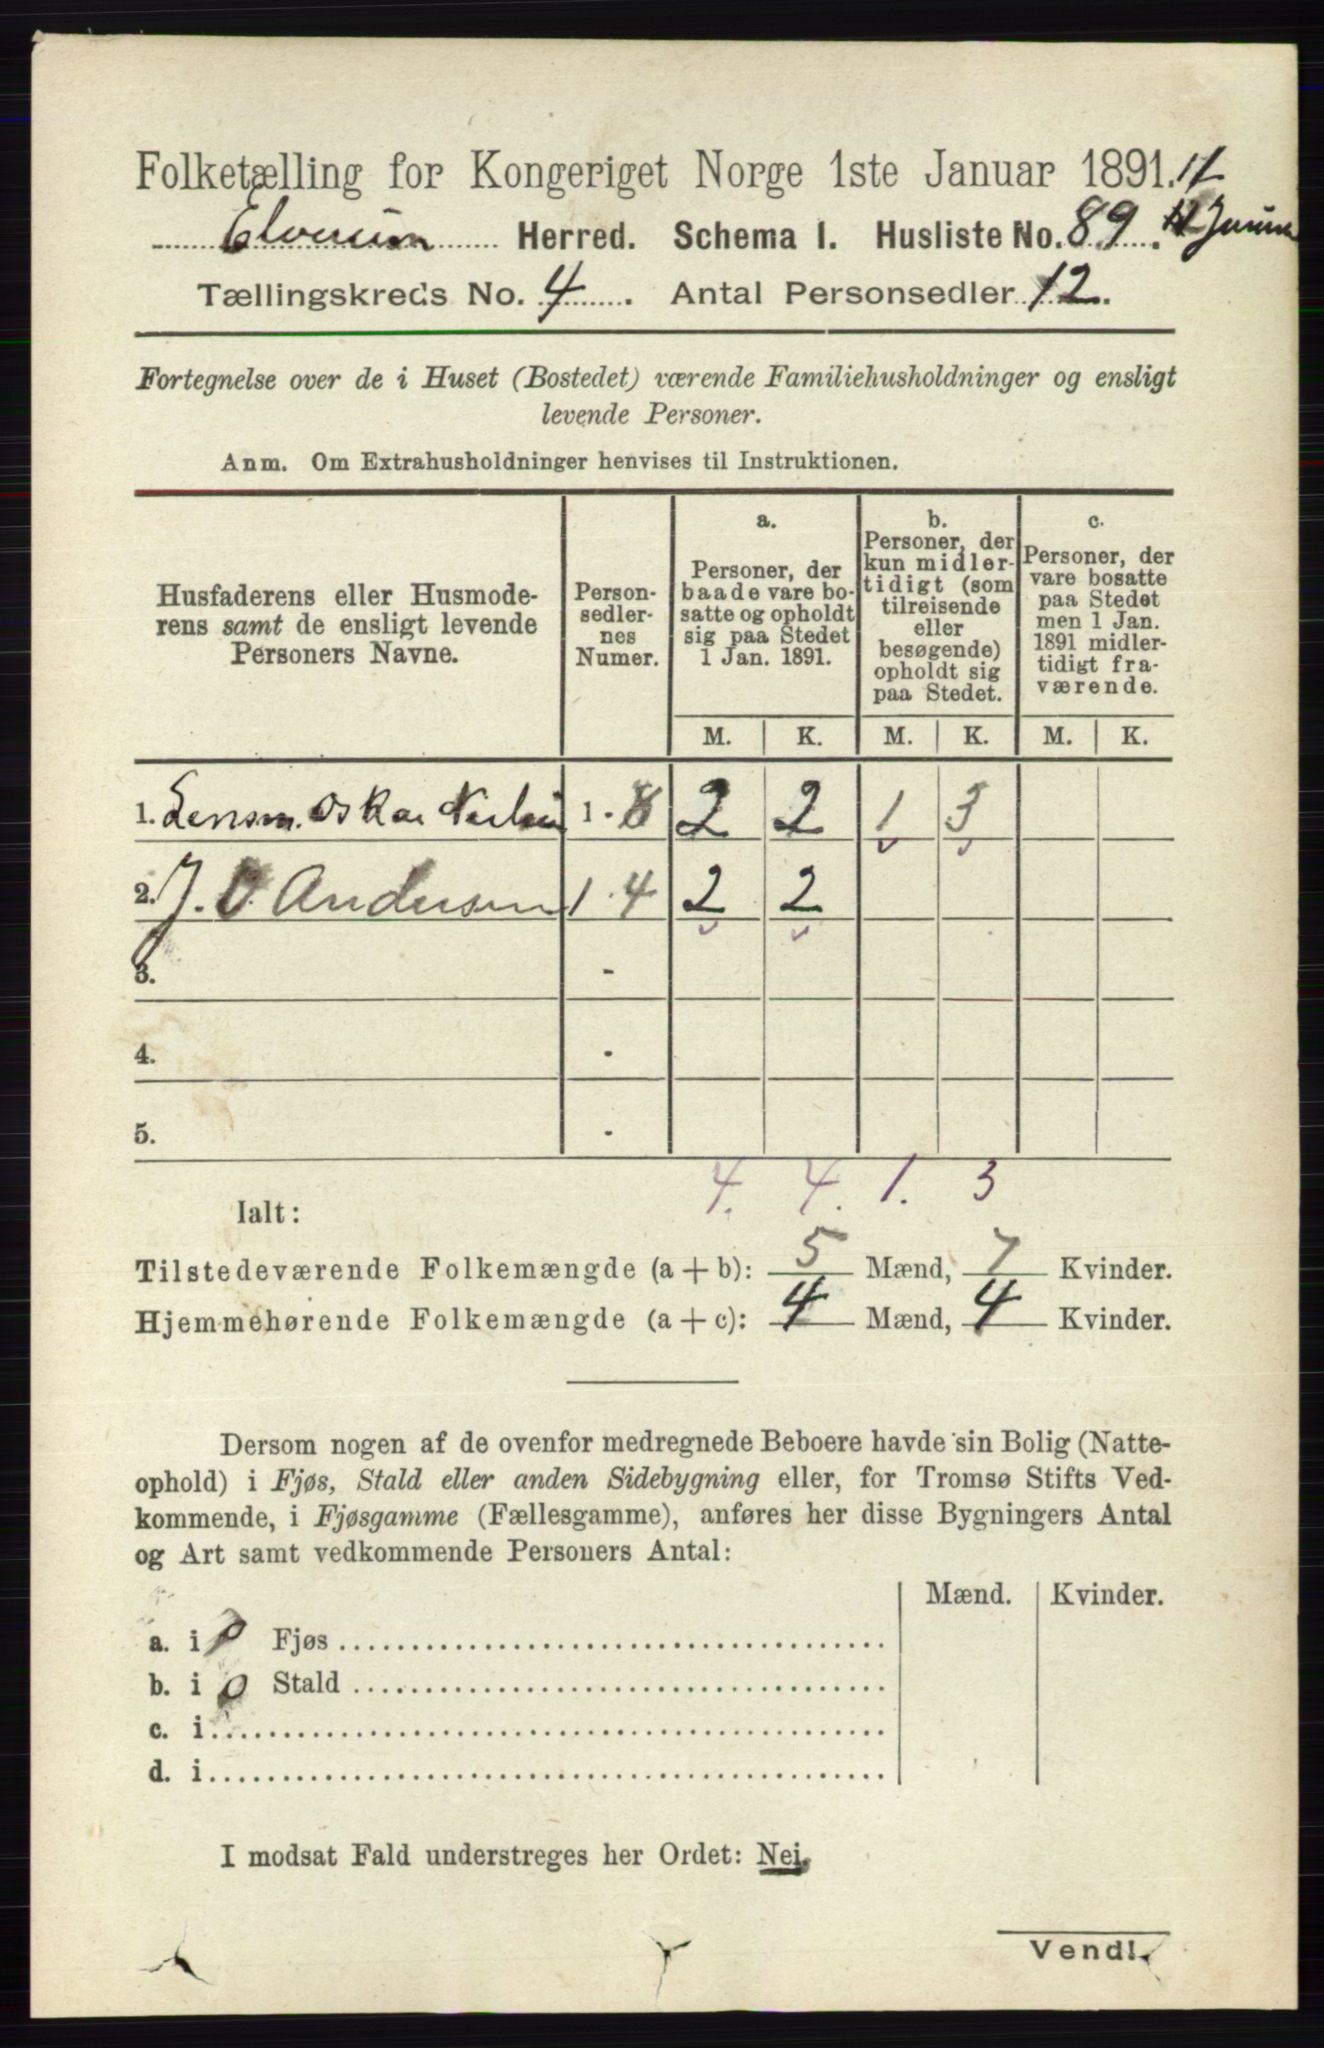 Folketælling for Kongeriget Norge 1ste Januar 1891.
Elverum Herred. Schema I. Husliste No. 89.
Tællingskreds No. 4. Antal Personsedler 12.
Fortegnelse over de i Huset (Bostedet) værende Familiehusholdninger og ensligt
levende Personer.
Anm. Om Extrahusholdninger henvises til Instruktionen.
Husfaderens eller Husmode-
rens samt de ensligt levende
Personers Navne.
Person-
sedler-
nes
Numer.
a.
Personer, der
baade vare bo-
satte og opholdt
sig paa Stedet
1 Jan. 1891.
b.
Personer, der
kun midler-
tidigt (som
tilreisende
eller
besøgende)
opholdt sig
paa Stedet.
c.
Personer, der
vare bosatte
paa Stedet
men 1 Jan.
1891 midler-
tidigt fra-
værende.
M. K. M. K. M. K.
1. Lensm. Oskar 1 - 8 2 2 1 3
2. J. O. Andersen 1 - 4 2 2
3. -
4. -
5. -
4. 4. 1. 3
Ialt:
Tilstedeværende Folkemængde (a + b): 5 Mænd, 7 Kvinder.
Hjemmehørende Folkemængde (a + c): 4 Mænd, 4 Kvinder.
Dersom nogen af de ovenfor medregnede Beboere havde sin Bolig (Natte-
ophold) i Fjøs, Stald eller anden Sidebygning eller, for Tromsø Stifts Ved-
kommende, i Fjøsgamme (Fællesgamme), anføres her disse Bygningers Antal
og Art samt vedkommende Personers Antal:
Mænd. Kvinder.
a. i 0 Fjøs
b. i 0 Stald
c. i
d. i
I modsat Fald understreges her Ordet: Nei.
Vend!